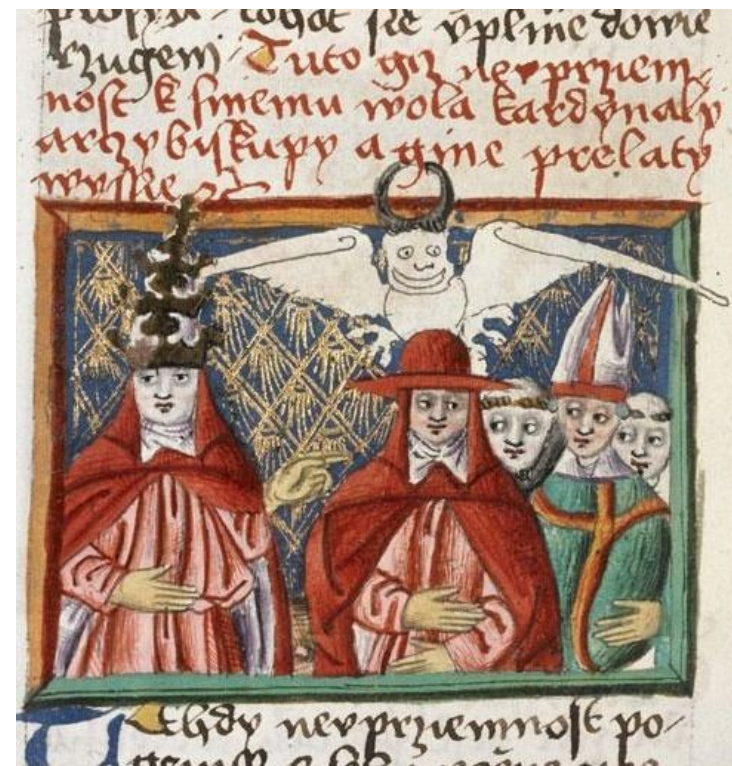 tohot sie vplnie dowie
rzugem Tuto giz nevprziem
nost k smemu wola kardynaly
arzybiskupy a gine prelaty
Tehdy nevprziemnost po-